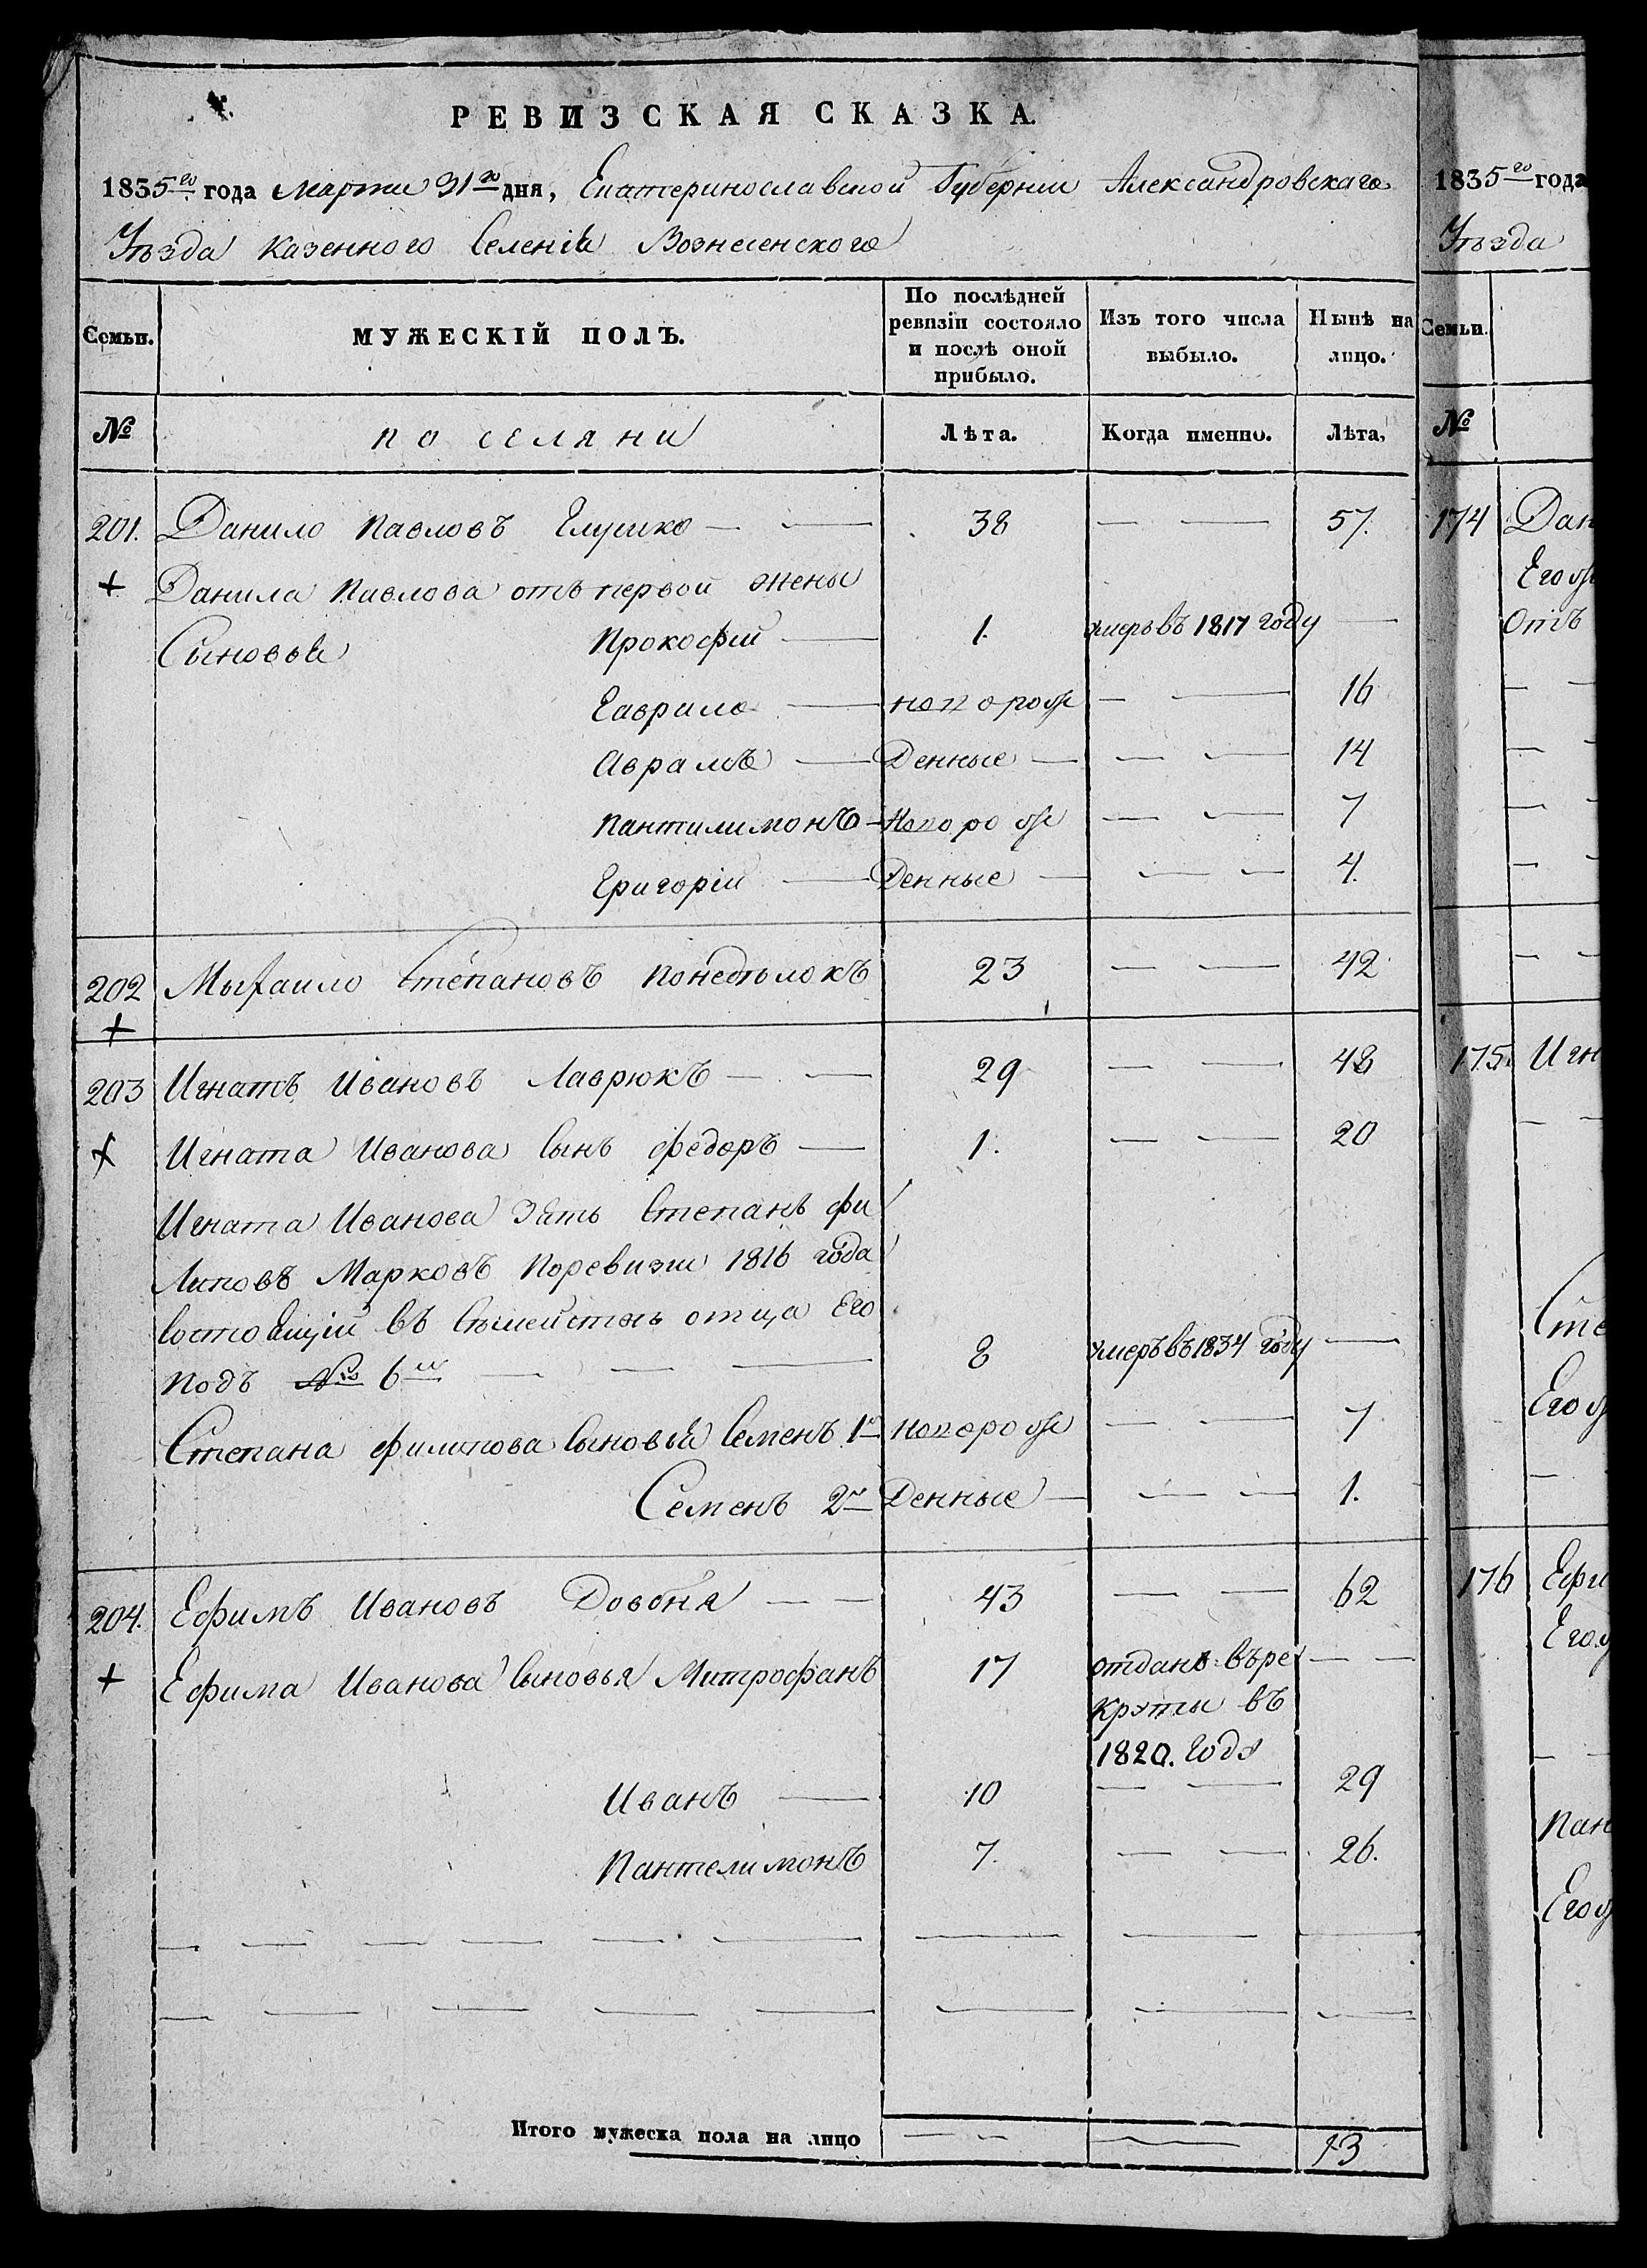 РЕВИЗСКАЯ СКАЗКА.
1835го года Марта 31го дня, Екатеринославской Губернии Александровскаго
Уѣзда Казенного Селенія Вознесенского
Семьи.
МУЖЕСКІЙ ПОЛЪ.
По послѣдней ревизіи состояло и послѣ оной прибыло.
Изъ того числа выбыло.
Нынѣ на лицо.
№
поселяни
Лѣта.
Когда именно.
Лѣта.
201. Данило Павловъ Глушко — — 38 — — 57.
+ Данила Павлова отъ первой жены
Сыновья Прокофій — 1. умеръ въ 1817 году —
Гаврило — новорож — — 16
Аврамъ — Денные — — — 14
Пантилимонъ — Новорож — — 7
Григорій — Денные — — — 4.
202 Михаило Степановъ Понедѣлокъ 23 — — 42
+
203 Игнатъ Ивановъ Лаврюкъ — — 29 — — 48
+ Игната Иванова Сынъ Федоръ — 1. — — 20
Игната Иванова Зять Степанъ Фи
Липовъ Марковъ Поревизіи 1816 года
Состоящій въ Семействѣ отца Его
подъ № 6 — — 8 умеръ въ 1834 году —
Степана Филипова Сыновья Семенъ 1й Новорож — — 7
Семенъ 2й Денные — — — 1.
204. Ефимъ Ивановъ Довбня — — 43 — — 62
+ Ефима Иванова Сыновья Митрофанъ 17 отданъ въ ре — —
круты въ
1820. Году
Иванъ — 10 — — 29
Пантелимонъ 7. — — 26.
Итого мужеска пола на лицо — — — 13
1835го года
Уѣзда
Семьи.
№
174 Дан
Его
Отъ
175. Игн
Сте
Его
176 Ефи
Его
Пан
Его